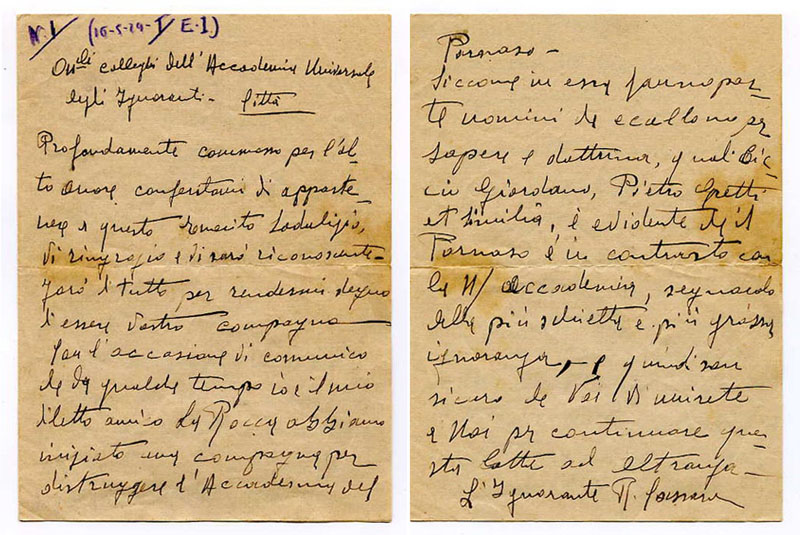 N. 1 (16-5-29- E.I)
On.li colleghi dell'Accademia Universale
degli Ignoranti - Città
Profondamente commosso per l'al-
to onore conferitomi di apparte-
nere a questo sodalizio,
vi ringrazio e vi sarò riconoscente -
farò di tutto per rendermi degno
d'essere vostro compagno
Per l'occasione vi comunico
che da qualche tempo io e il mio
diletto amico La Rocca abbiamo
iniziato una campagna per
distruggere l'Accademia del
Parnaso -
Siccome in essa fanno par-
te uomini che eccellono per
sapere e dottrina, quali Cic-
cio Giordano, Pietro
et similia, è evidente che il
Parnaso è in contrasto con
la N/ accademia, segnacolo
della più schietta e più grassa
ignoranza, - e quindi son
sicuro che Voi vi unirete
a Noi per continuare que-
sta lotta ad oltranza -
L'Ignorante